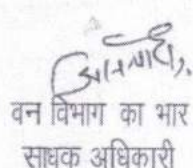 वन विभाग का भार
साधक अधिकारी